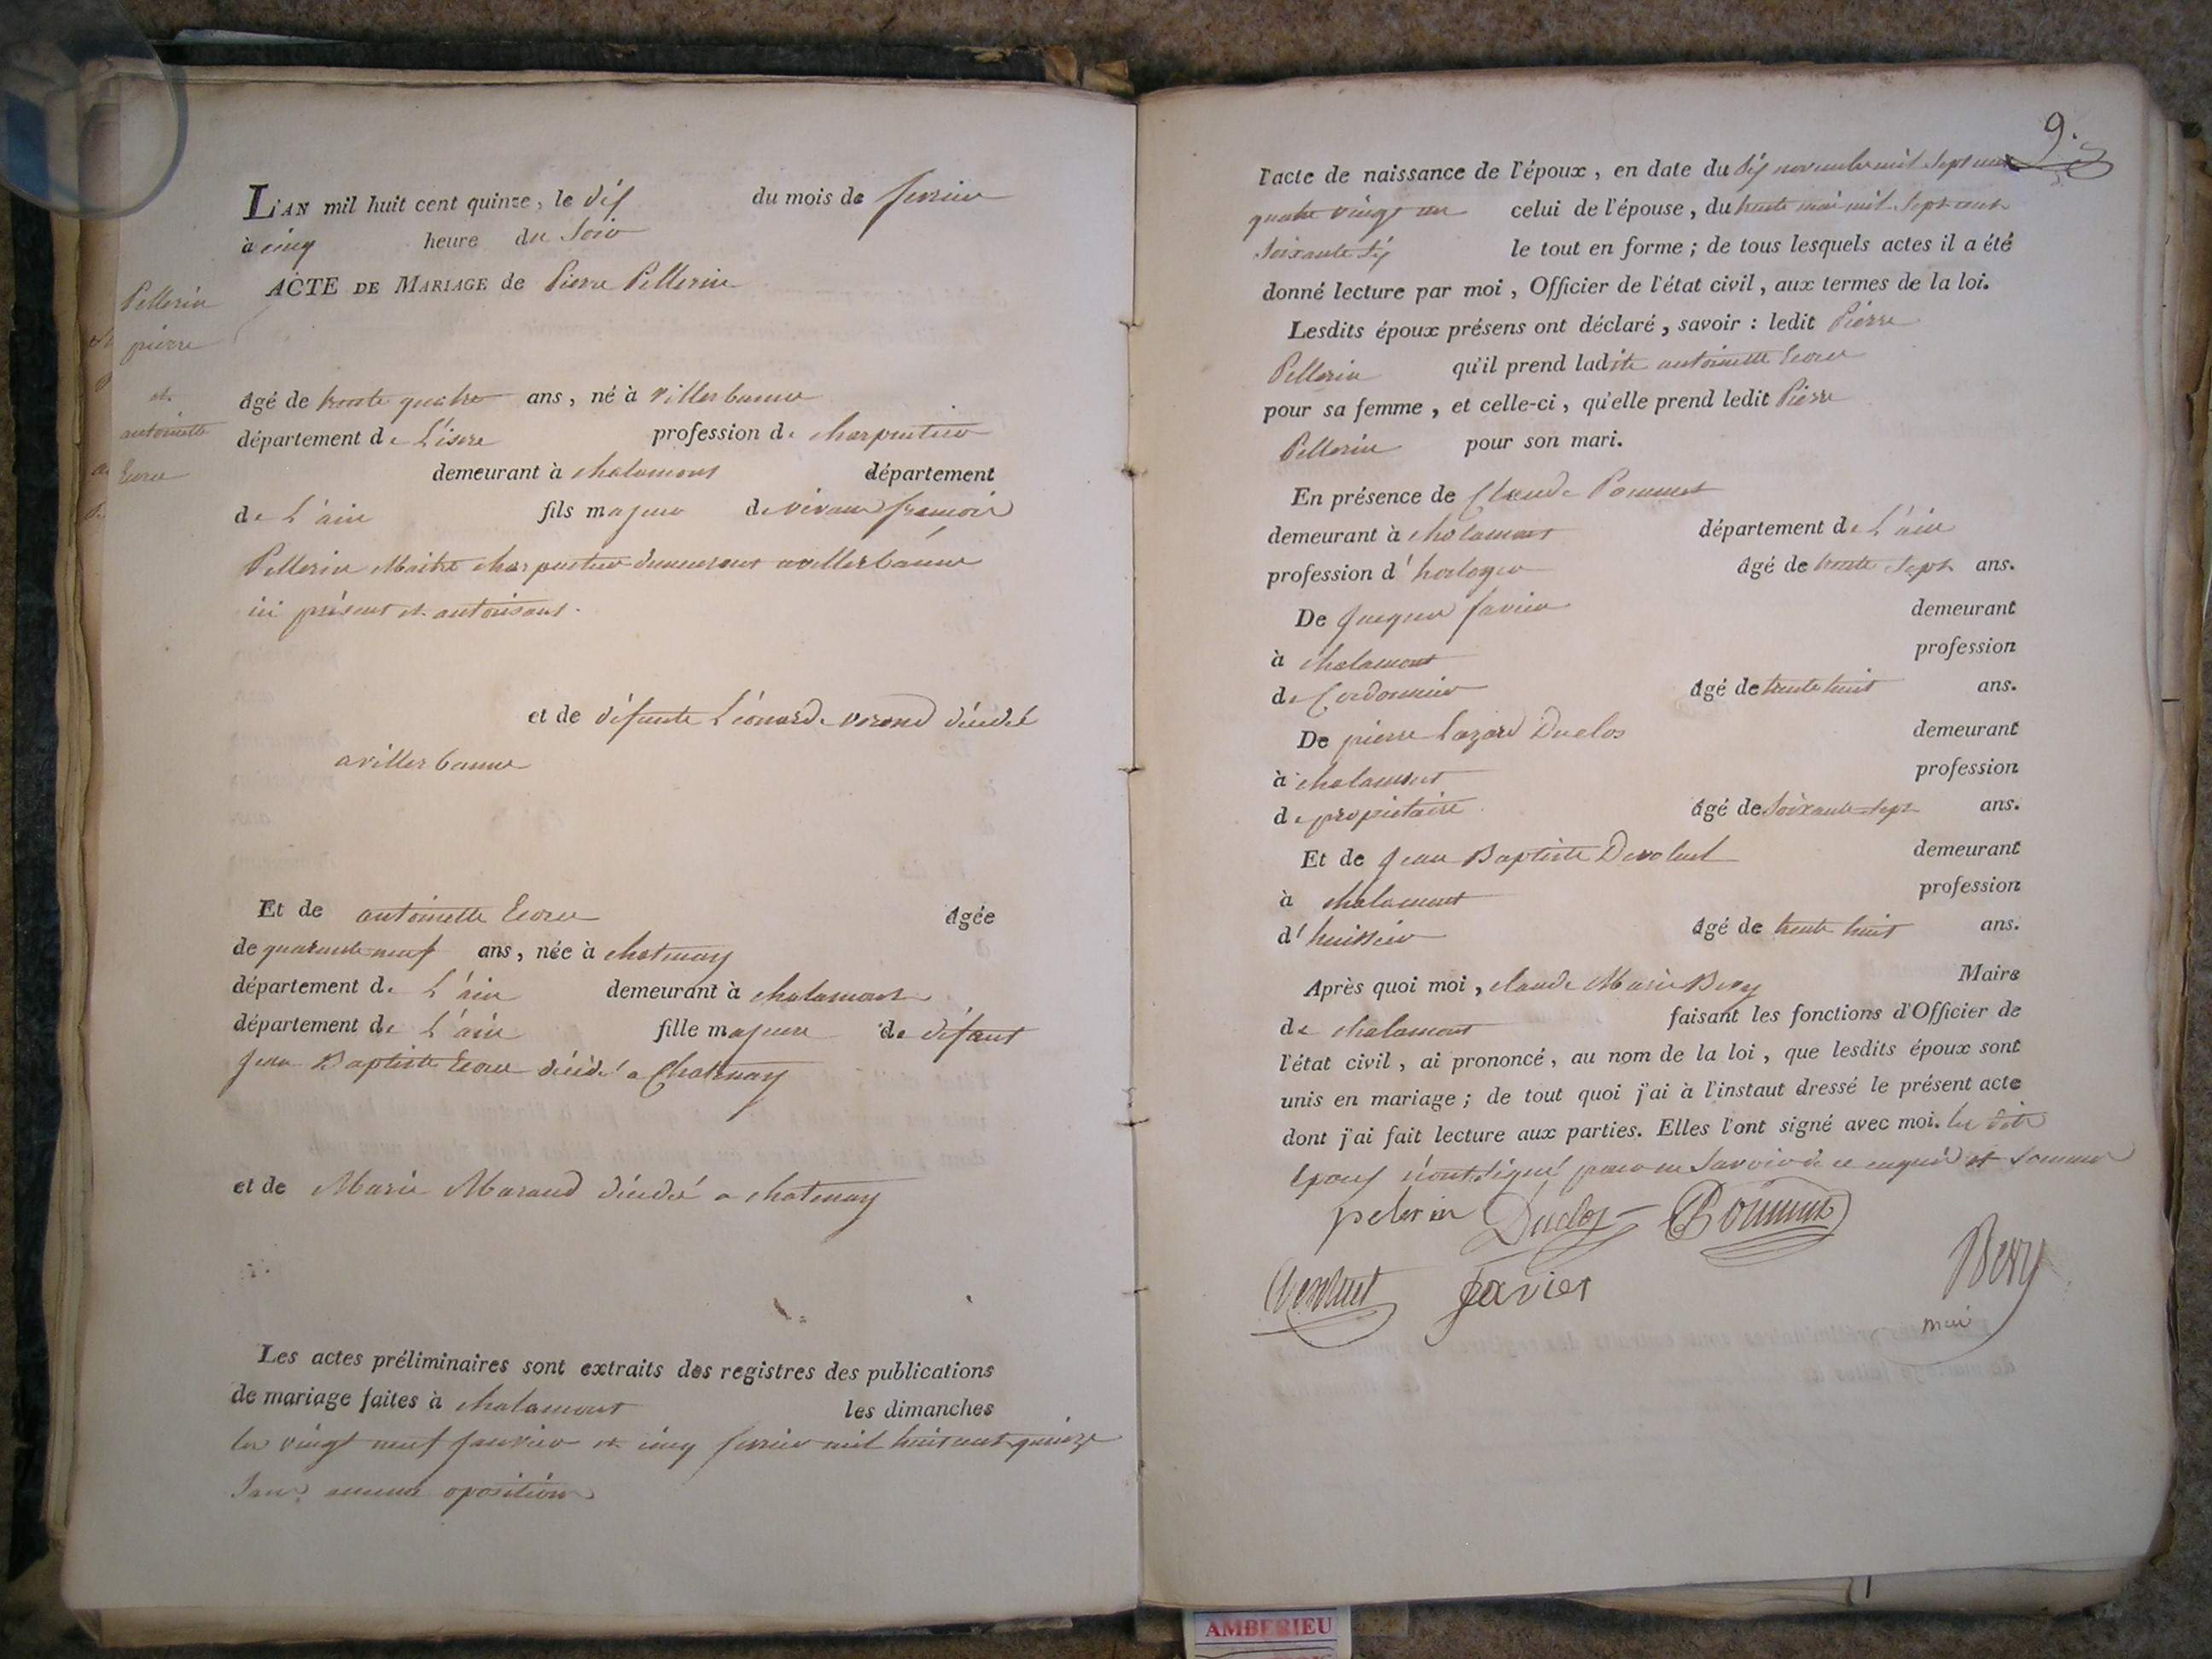 Pellerin
pierre
et
antoinette
Ecorce
L'AN mil huit cent quinze, le dix du mois de fevrier
à cinq heure du Soir
ACTE DE MARIAGE de Pierre Pellerin
âgé de trente quatre ans, né à villerbanne
département de L'isere profession de charpentier
demeurant à chalamont département
de L'ain fils majeur de vivant francois
Pellerin Maitre charpentier demeurant a villerbanne
ici présent et autorisant.
et de défunte Léonarde décédé
a villerbanne
Et de antoinette âgée
de quarante neuf ans, née à chatenay
département de L'ain demeurant à chalamont
département de L'ain fille majeure de défunt
Jean Baptiste décédé a Chatenay
et de Marie Maraud décédé a chatenay
Les actes préliminaires sont extraits des registres des publications
de mariage faites à chalamont les dimanches
les vingt neuf janvier et cinq fevrier mil huit cent quinze
Sans aucune oposition
9.
l'acte de naissance de l'époux, en date du dix novembre mil Sept cent
quatre vingt un celui de l'épouse, du trente mai mil Sept cent
Soixante Six le tout en forme; de tous lesquels actes il a été
donné lecture par moi, Officier de l'état civil, aux termes de la loi.
Lesdits époux présens ont déclaré, savoir: ledit Pierre
Pellerin qu'il prend ladite antoinette
pour sa femme, et celle-ci, qu'elle prend ledit Pierre
Pellerin pour son mari.
En présence de Claude Pommet
demeurant à chalamont département de L'ain
profession d'horloger âgé de trente Sept ans.
De Jacques Javier demeurant
à chalamont profession
de Cordonnier âgé de trente huit ans.
De pierre Lazard Duclos demeurant
à chalamont profession
de propietaire âgé de Soixante Sept ans.
Et de Jean Baptiste demeurant
à chalamont profession
d'huissier âgé de trente huit ans.
Après quoi moi, claude Marie Bery Maire
de chalamont faisant les fonctions d'Officier de
l'état civil, ai prononcé, au nom de la loi, que lesdits époux sont
unis en mariage; de tout quoi j'ai à l'instaut dressé le présent acte
dont j'ai fait lecture aux parties. Elles l'ont signé avec moi. les dits
Epoux n'ont Signé pour ne Savoir de ce enquis et Sommé
pelerin Duclos
Javier Bery
AMBERIEU